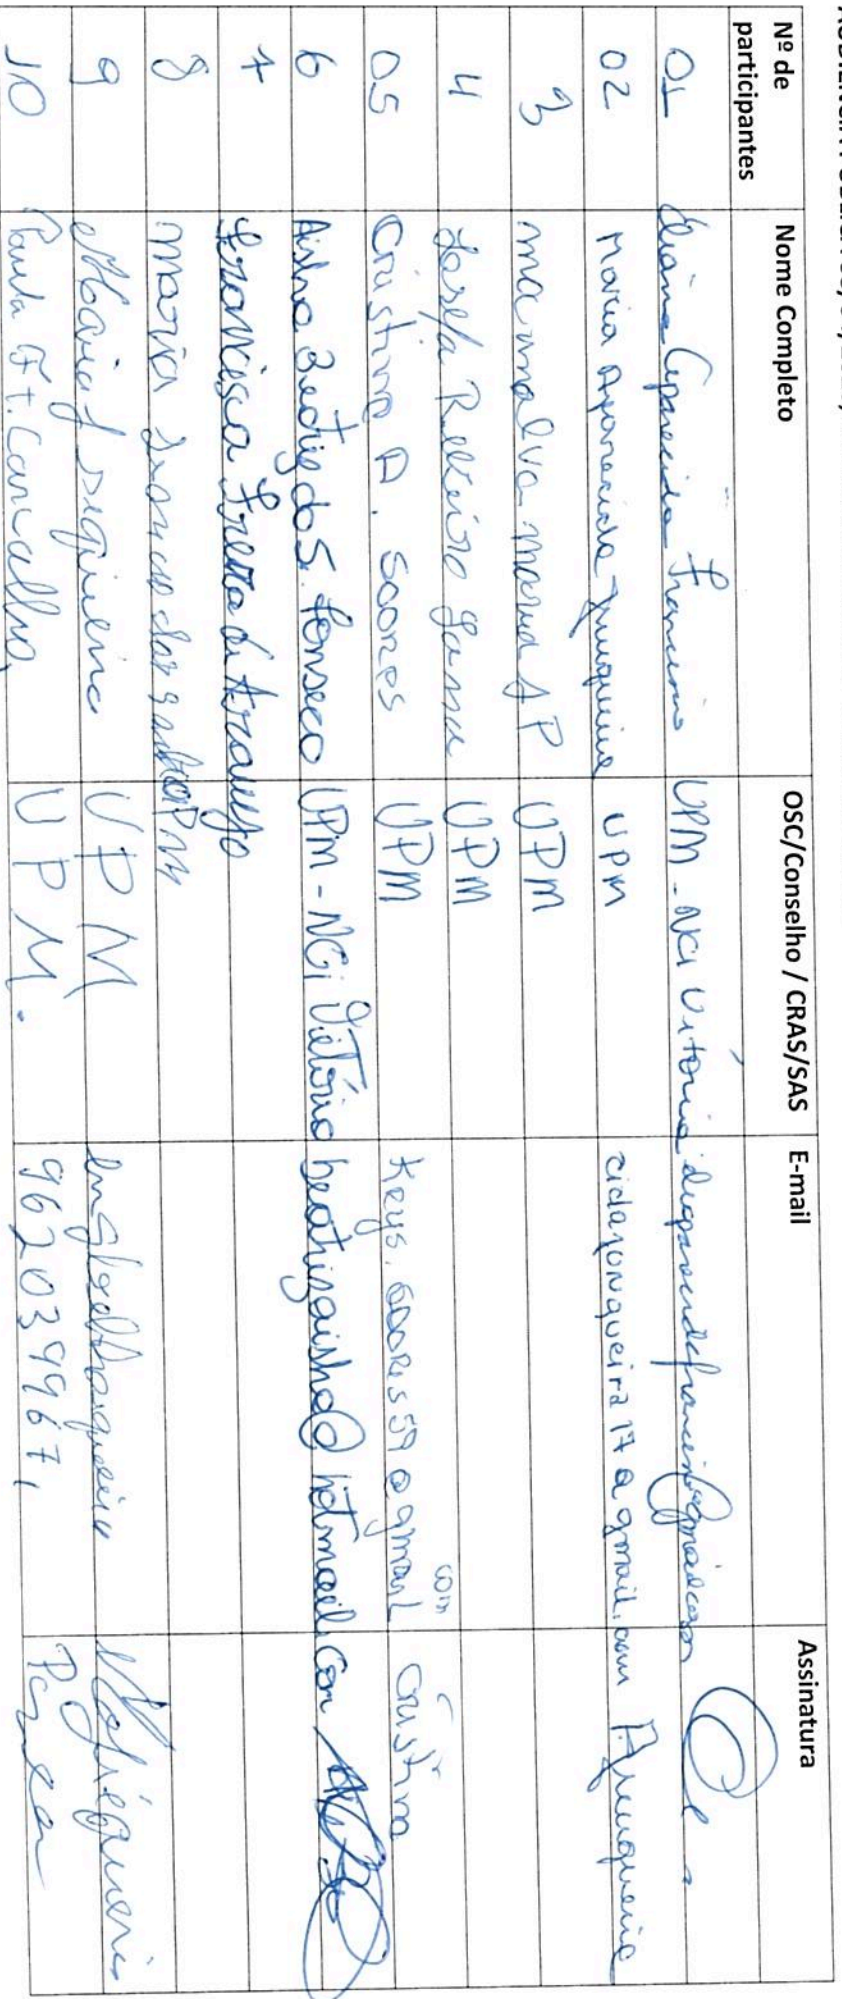 Nº de participantes Nome Completo OSC/Conselho / CRAS/SAS E-mail Assinatura
01 Aparecida UPM - NCI Vitória
02 Maria Aparecida Junqueira UPM cidajunqueira17@gmail.com Ajunqueira
3 Ma malva Maria J P UPM
4 Josefa Ribeiro Lama UPM
05 Cristina A. Soares UPM Keys.soares59@gmail com Cristina
6 Aisha Beatriz do S. Fonseca UPM - NCI Vitória beatrizaisha@hotmail.com
7 Francisca Freita de Araujo
8 Maria dos Santos UPM
9 Maria J Siqueira UPM
10 Paula F. T. Carvalho, UPM. 962039967,